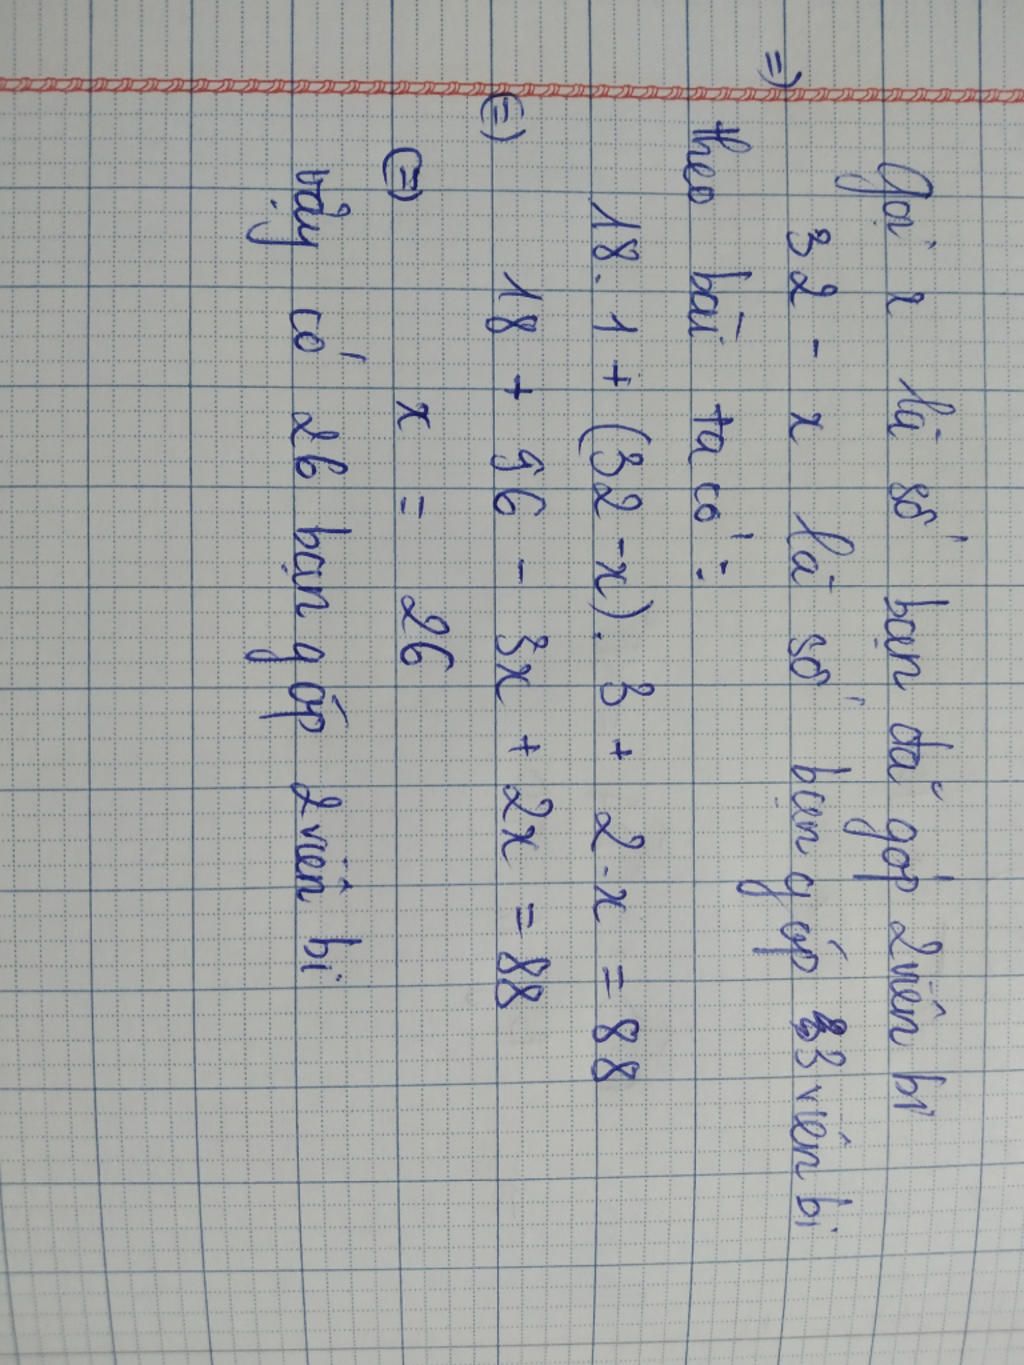 Gọi x là số bạn đã góp 2 viên bi
=) 32 - x là số bạn góp 3 viên bi
theo bài ta có :
18 . 1 + (32 - x) . 3 + 2 . x = 88
(=) 18 + 96 - 3x + 2x = 88
(=) x = 26
vậy có 26 bạn góp 2 viên bi